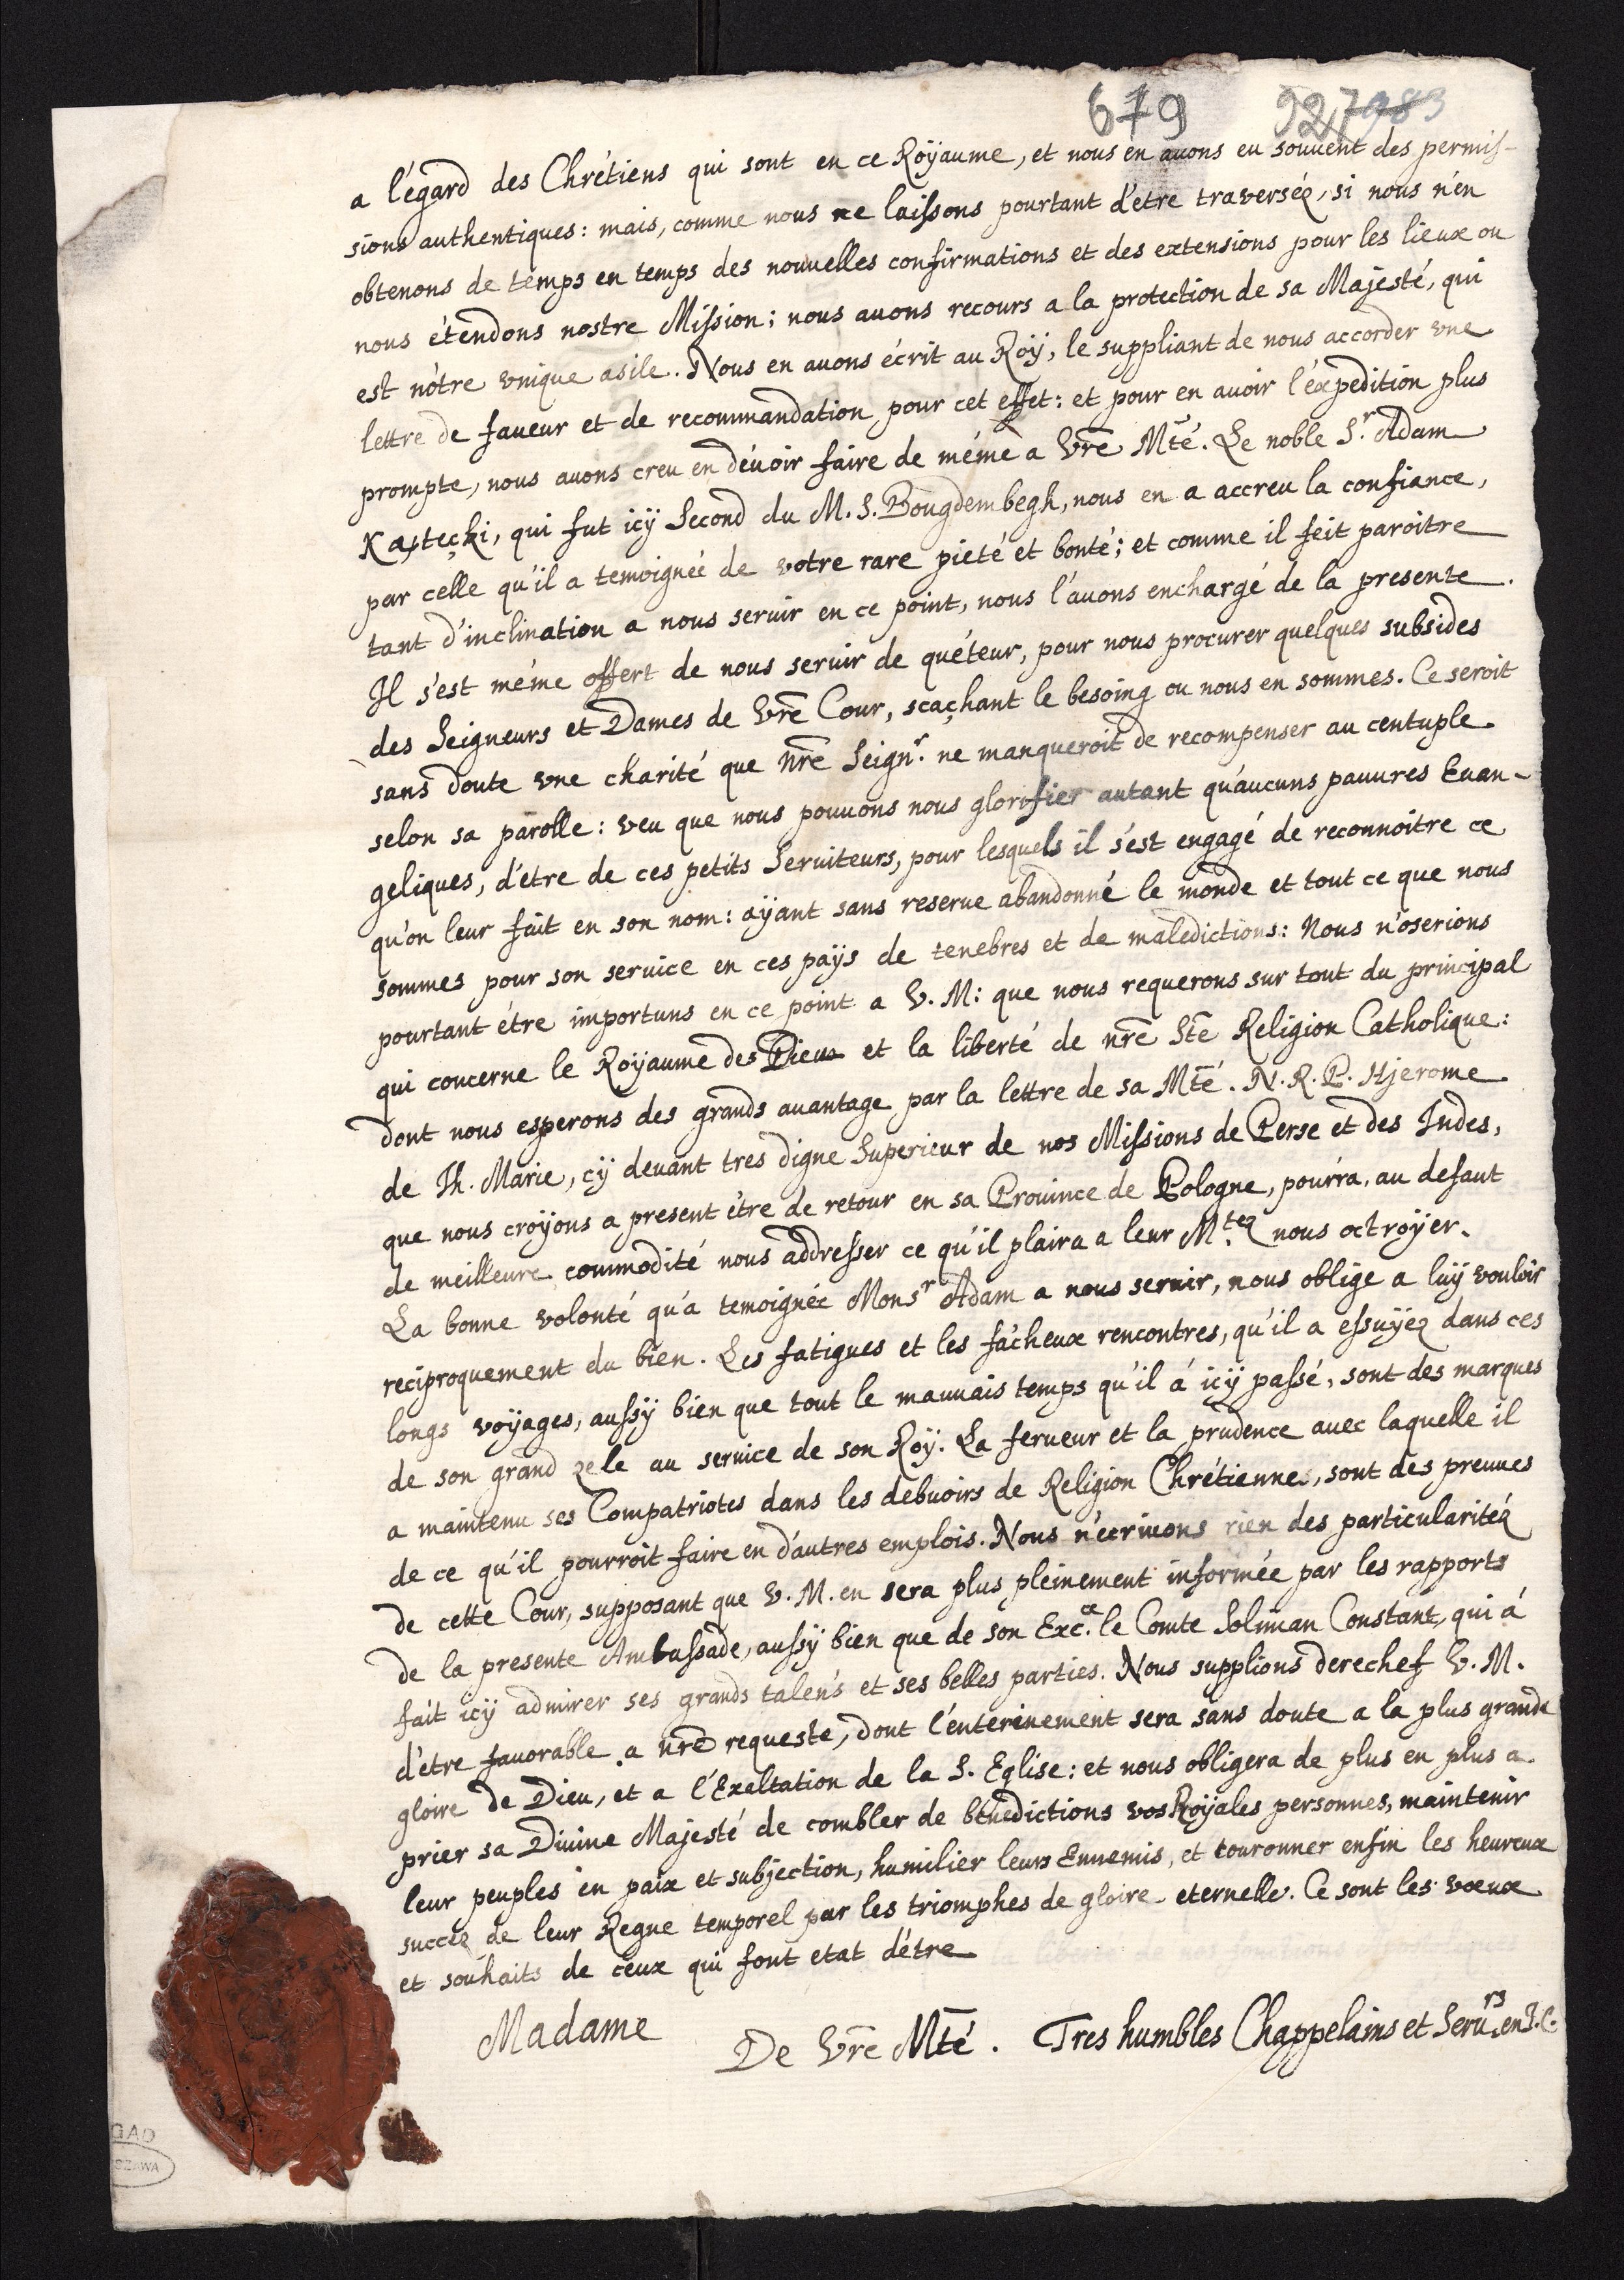 679 927 983
a l'égard des Chrétiens qui sont en ce Roÿaume, et nous en auons eu souuent des permis-
sions authentiques: mais, comme nous ne laissons pourtant d'etre traverséz, si nous n'en
obtenons de temps en temps des nouuelles confirmations et des extensions pour les lieux ou
nous étendons nostre Mission; nous auons recours a la protection de sa Majesté, qui
est nôtre vnique asile. Nous en auons écrit au Roÿ, le suppliant de nous accorder vne
lettre de faueur et de recommandation pour cét effet: et pour en auoir l'éxpedition plus
prompte, nous auons creu en déuoir faire de méme a Vre Mté. Le noble Sr. Adam
Kasteçki, qui fut icÿ Second du M. S. Bougdembegh, nous en a accreu la confiance,
par celle qu'il a temoignée de votre rare pieté et bonté; et comme il feit paroitre
tant d'inclination a nous seruir en ce point, nous l'áuons enchargé de la presente.
Il s'est méme offert de nous seruir de quéteur, pour nous procurer quelques subsides
des Seigneurs et Dames de Vre Cour, scaçhant le besoing ou nous en sommes. Ce seroit
sans doute vne charité que nre Seignr. ne manqueroit de recompenser au centuple
selon sa parolle: veu que nous pouuons nous glorifier autant qu'aucuns pauures Euan-
geliques, d'étre de ces petits Seruiteurs, pour lesquels il s'est engagé de reconnoitre ce
qu'on leur fait en son nom: aÿant sans reserue abandonné le monde et tout ce que nous
sommes pour son seruice en ces paÿs de tenebres et de maledictions: Nous n'oserions
pourtant étre importuns en ce point a V. M: que nous requerons sur tout du principal
qui concerne le Roÿaume des Dieux et la liberté de nre Ste Religion Catholique:
dont nous esperons des grands auantage par la lettre de sa Mté. N. R. P. Hjerome
de Jh. Marie, cÿ deuant tres digne Superieur de nos Missions de Perse et des Indes,
que nous croÿons a present étre de retour en sa Prouince de Pologne, pourra, au defaut
de meilleure commodité nous addresser ce qu'il plaira a leur Mtez nous octroÿer.
La bonne volonté qu'a temoignée Monsr Adam a nous seruir, nous oblige a luÿ vouloir
reciproquement du bien. Les fatigues et les fácheux rencontres, qu'il a essuÿez dans ces
longs voÿages, aussÿ bien que tout le mauuais temps qu'il á icÿ passé, sont des marques
de son grand zele au seruice de son Roÿ. La ferueur et la prudence auec laquelle il
a maintenu ses Compatriotes dans les debuoirs de Religion Chrétienne, sont des preuues
de ce qu'il pourroit faire en d'autres emplois. Nous n'écriuons rien des particularitéz
de cette Cour, supposant que V. M. en sera plus pleinement informée par les rapports
de la presente Ambassade, aussÿ bien que de son Exc.ce le Comte Soliman Constant, qui á
fait icÿ admirer ses grands talens et ses belles parties. Nous supplions derechef V. M.
d'étre fauorable a nre requeste, dont l'enterinement sera sans doute a la plus grande
gloire de Dieu, et a l'Exaltation de la S. Eglise: et nous obligera de plus en plus a
prier sa Diuine Majesté de combler de benedictions vos Roÿales personnes, maintenir
leur peuples en paix et subjection, humilier leurs Ennemis, et couronner enfin les heureux
succez de leur Regne temporel par les triomphes de gloire eternelle. Ce sont les voeux
et souhaits de ceux qui font etat d'étre
Madame
De Vre Mté. Tres humbles Chappelains et Serurs. en J.C.
GAD